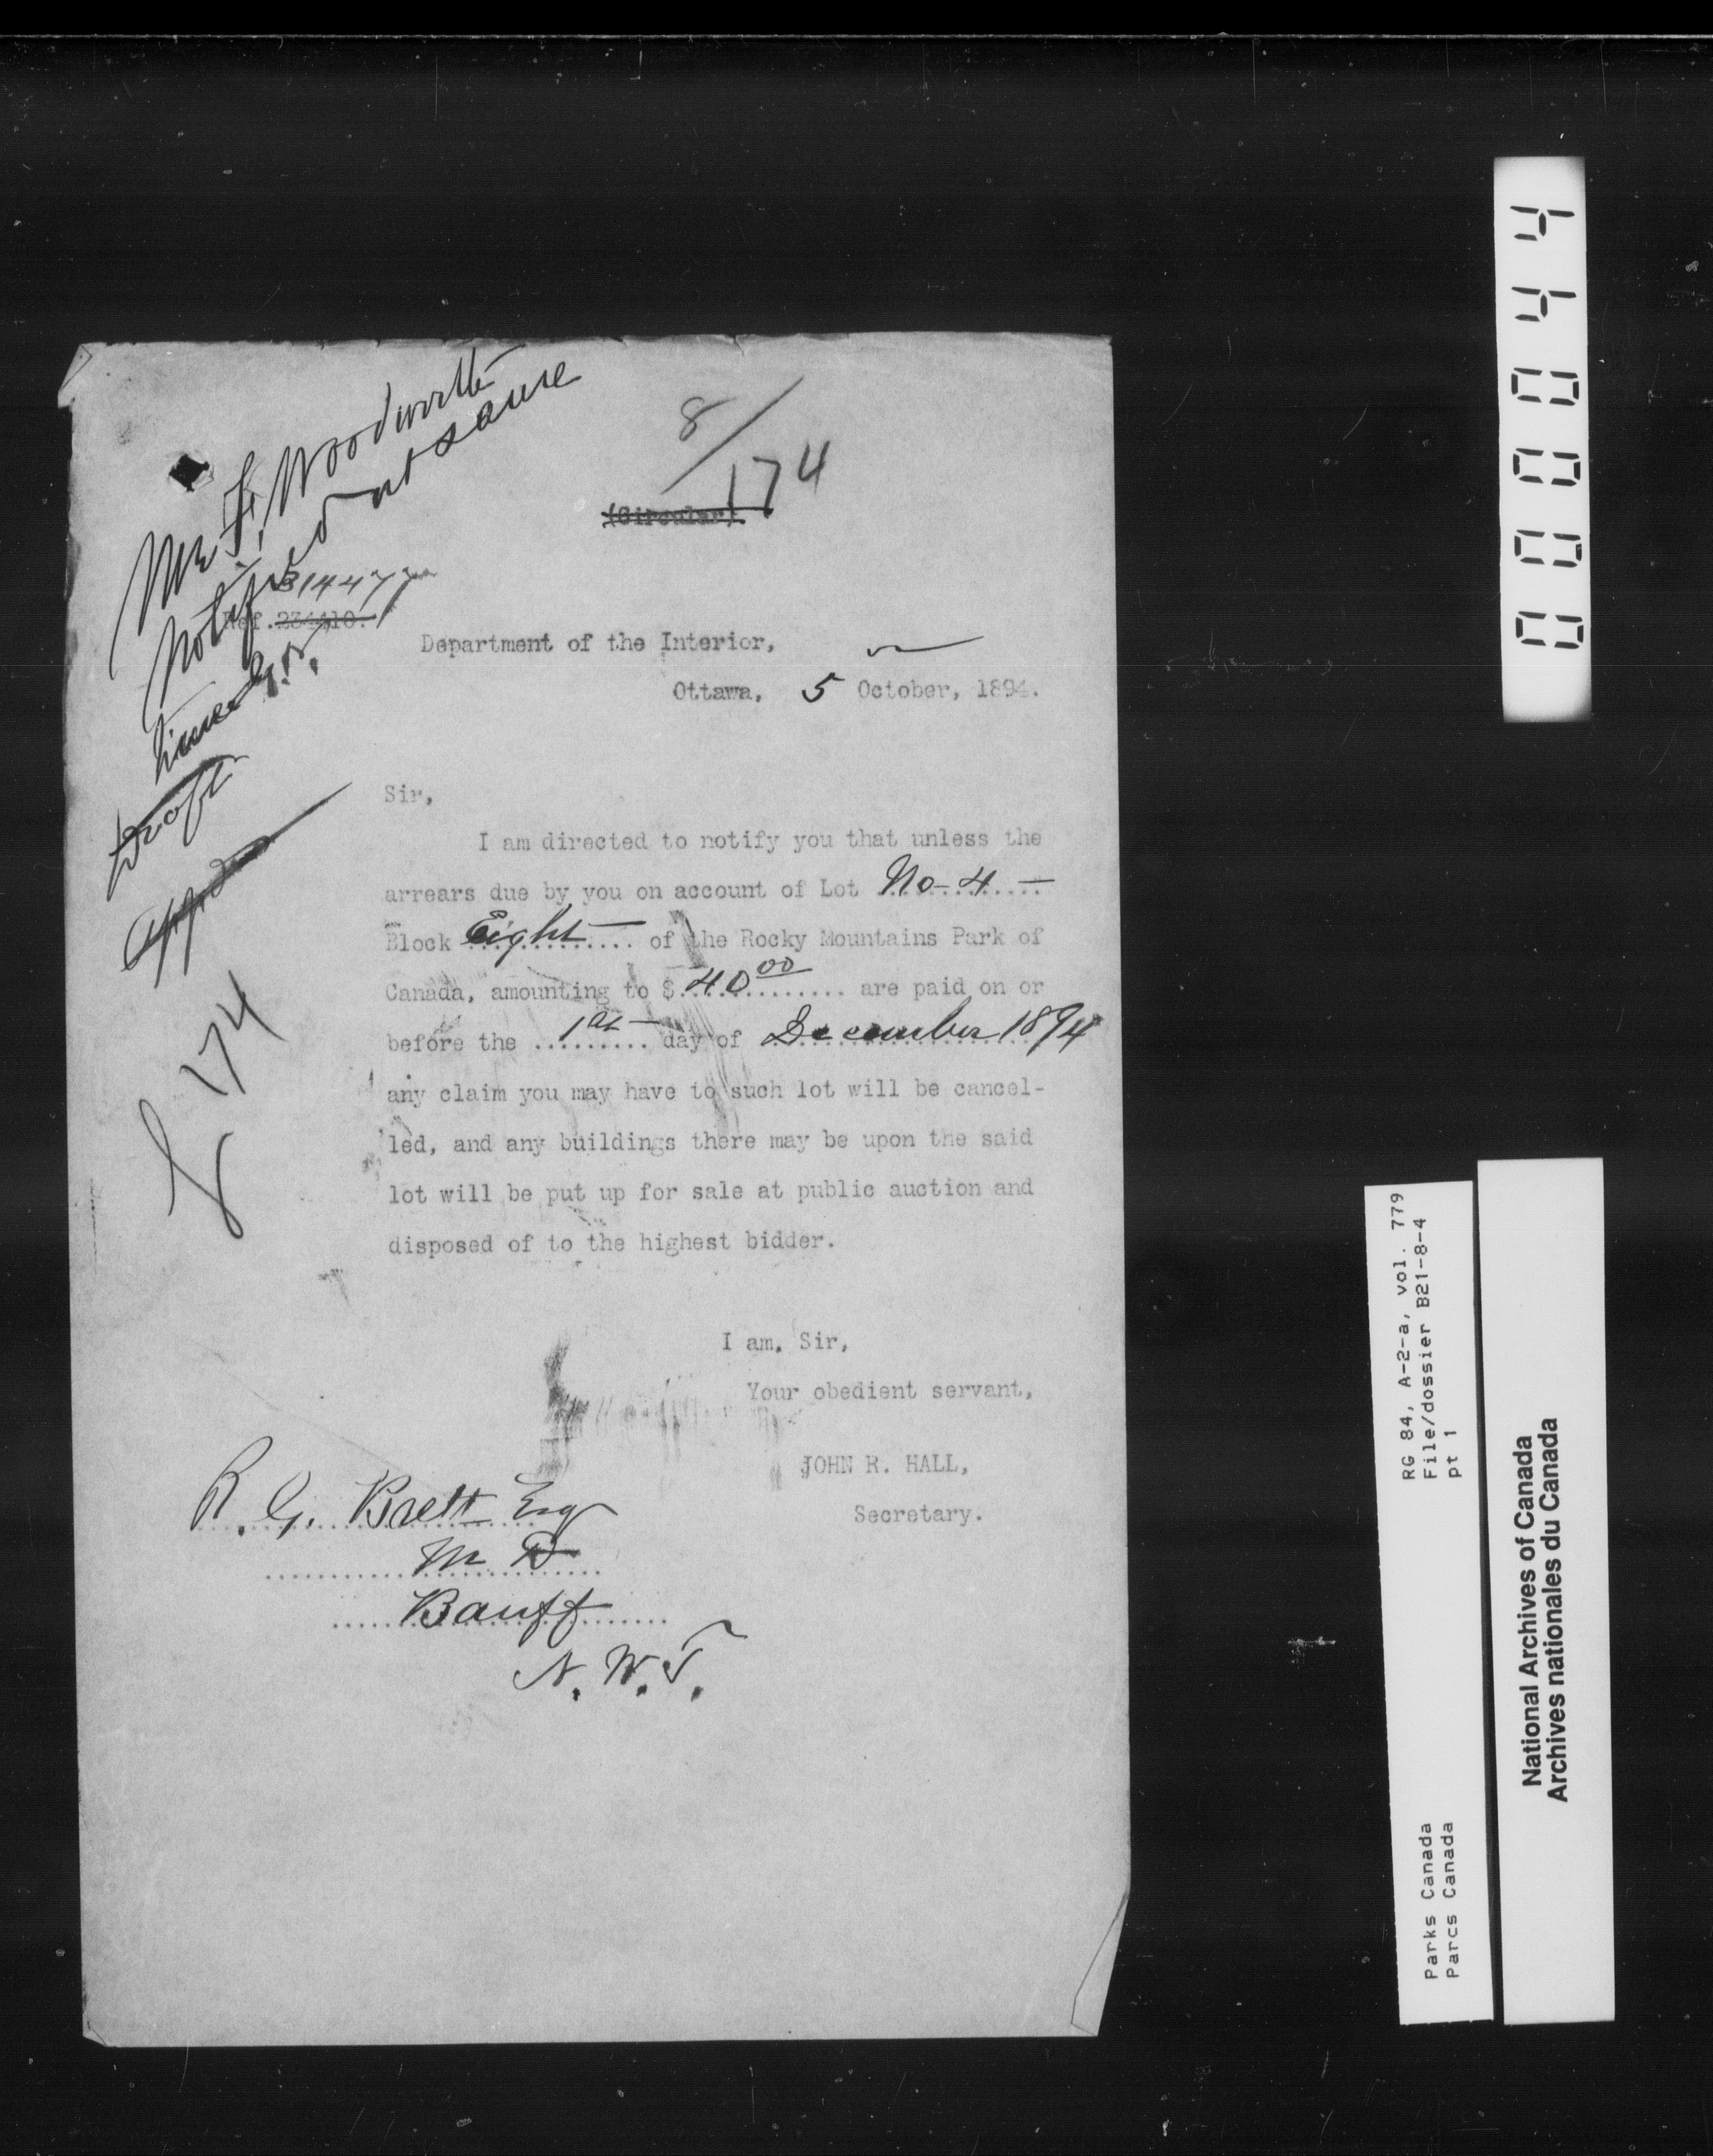 Mr. F. Woodworth
notified at same
time G.B.
Draft
8/174
(Circular).
31447
Ref. 234410.
Department of the Interior,
Ottawa, 5 October, 1894.
Sir,
I am directed to notify you that unless the
arrears due by you on account of Lot No. 4
Block Eight of the Rocky Mountains Park of
Canada, amounting to $ 40.00 are paid on or
before the 1st day of December 1894
any claim you may have to such lot will be cancel-
led, and any buildings there may be upon the said
lot will be put up for sale at public auction and
disposed of to the highest bidder.
8/174
I am, Sir,
Your obedient servant,
JOHN R. HALL,
Secretary.
R. G. Brett Esq
M D
Banff
N. W. T.
000044
RG 84, A-2-a, vol. 779
File/dossier B21-8-4
pt 1
Parks Canada
Parcs Canada
National Archives of Canada
Archives nationales du Canada